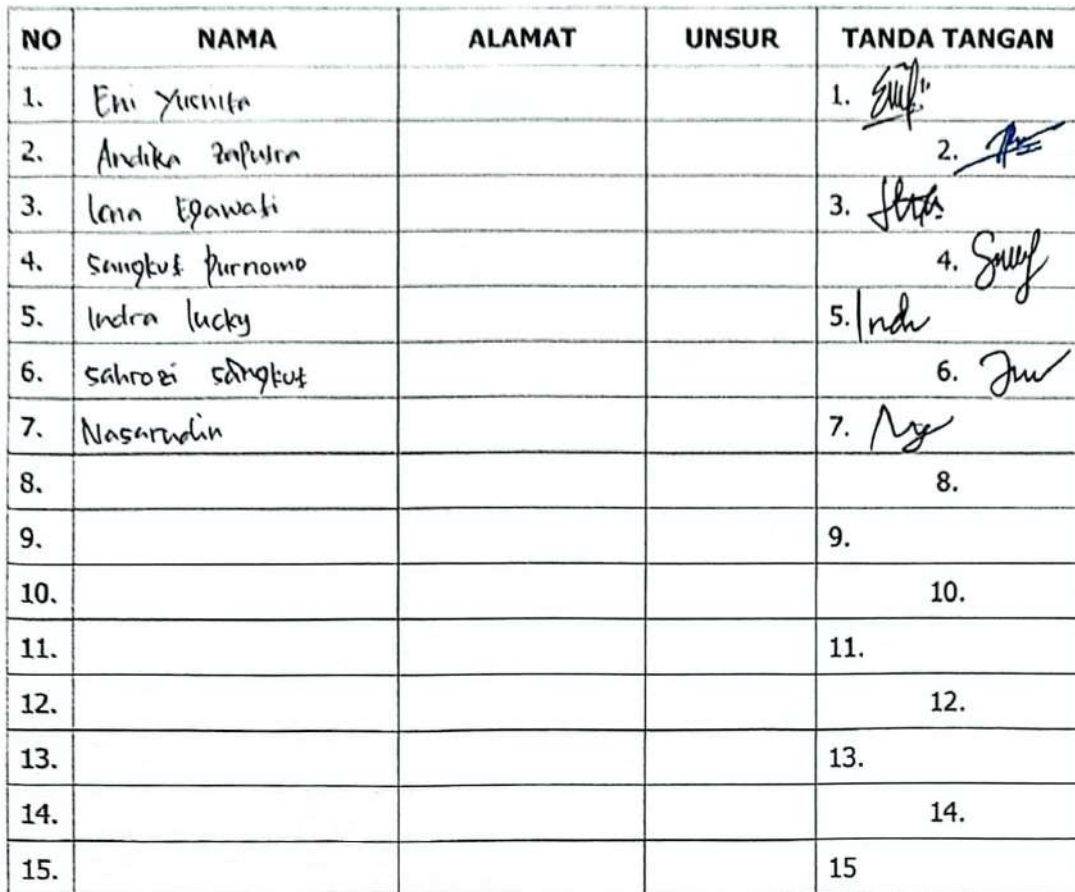 NO NAMA ALAMAT UNSUR TANDA TANGAN
1. Eni Yusnita 1.
2. Andika Zaputra 2.
3. lena Egawati 3.
4. Sangkut Purnomo 4.
5. Indra lucky 5.
6. Sahrozi sangkut 6.
7. Nasarudin 7.
8. 8.
9. 9.
10. 10.
11. 11.
12. 12.
13. 13.
14. 14.
15. 15